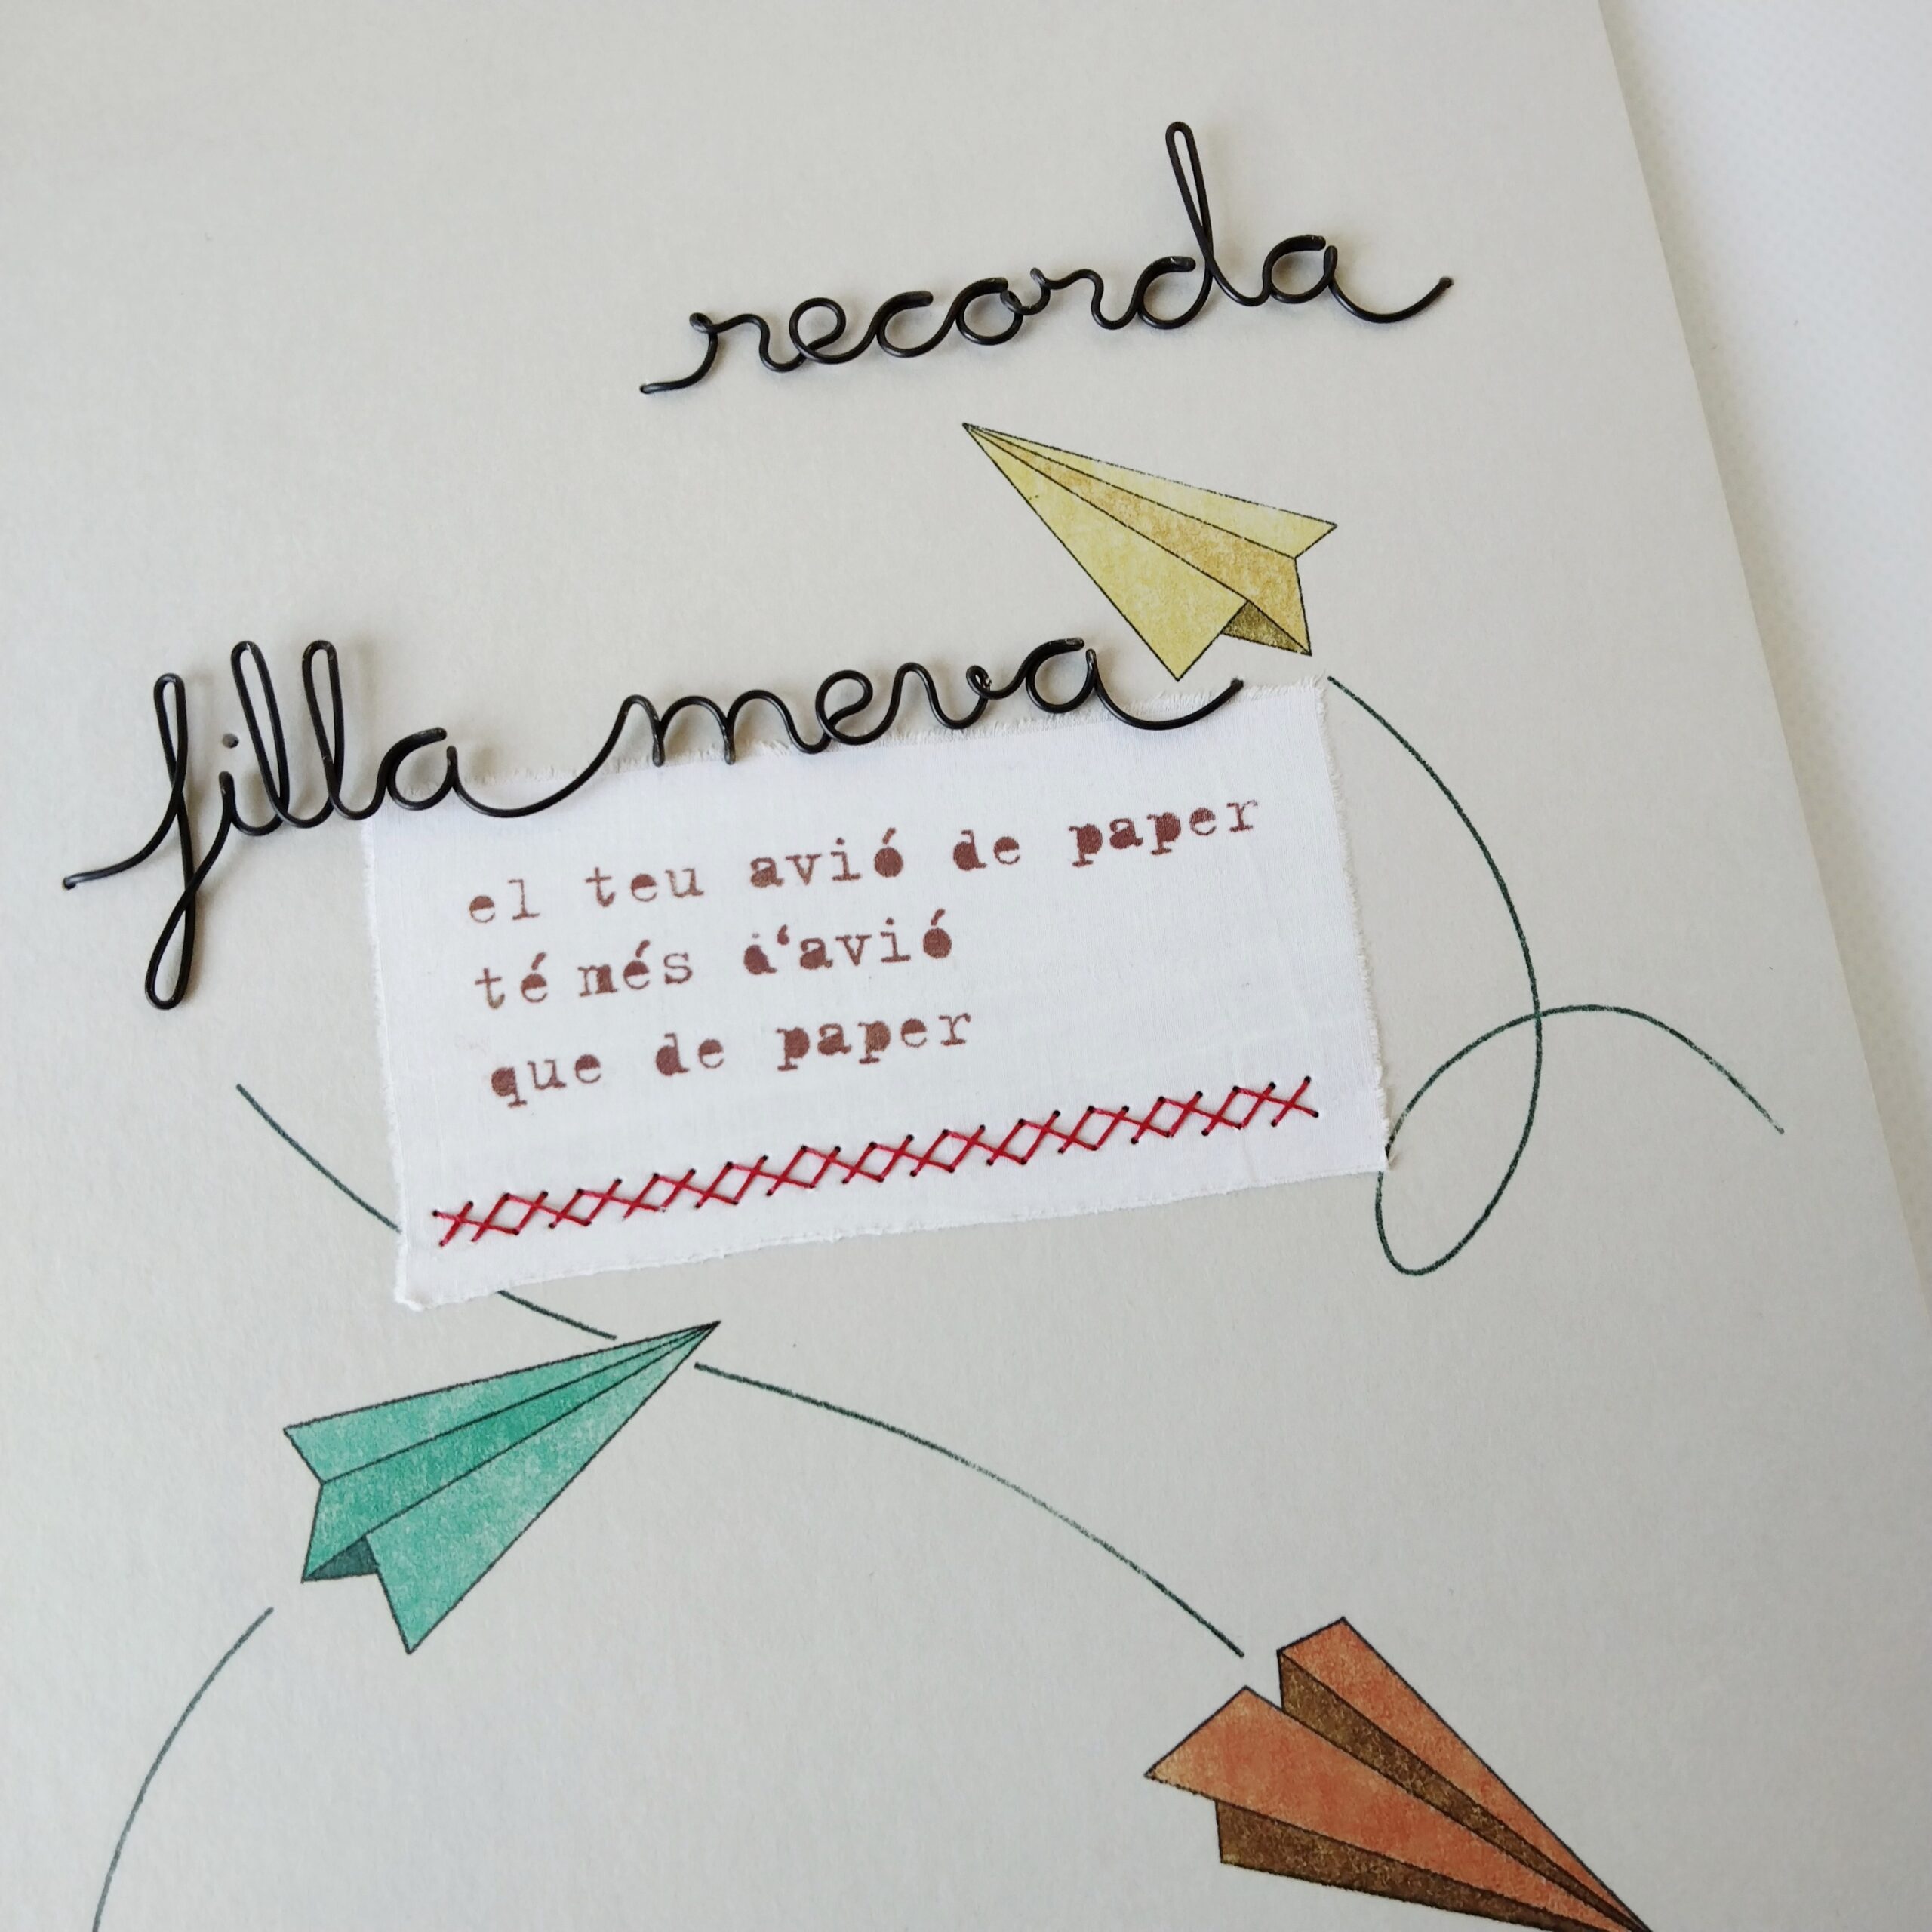 recorda
filla meva
el teu avió de paper
té més d'avió
que de paper